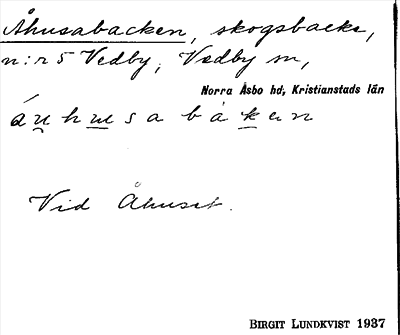 Åhusabacken, skogsbacke,
n:r 5 Vedby, Vedby sn,
Norra Åsbo hd, Kristianstads län
Vid Åhuset.
BIRGIT LUNDKVIST 1937